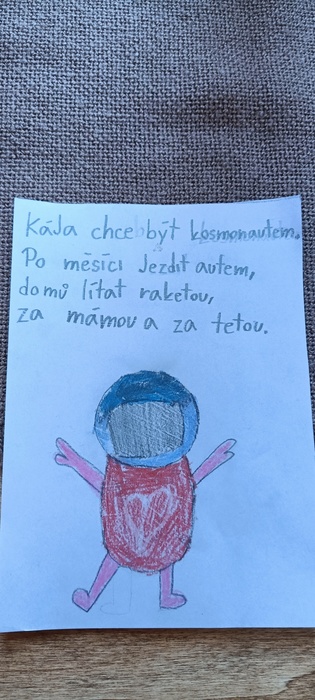 Kája chce být kosmonautem.
Po měsíci Jezdit autem,
domů lítat raketou,
za mámou a za tetou.